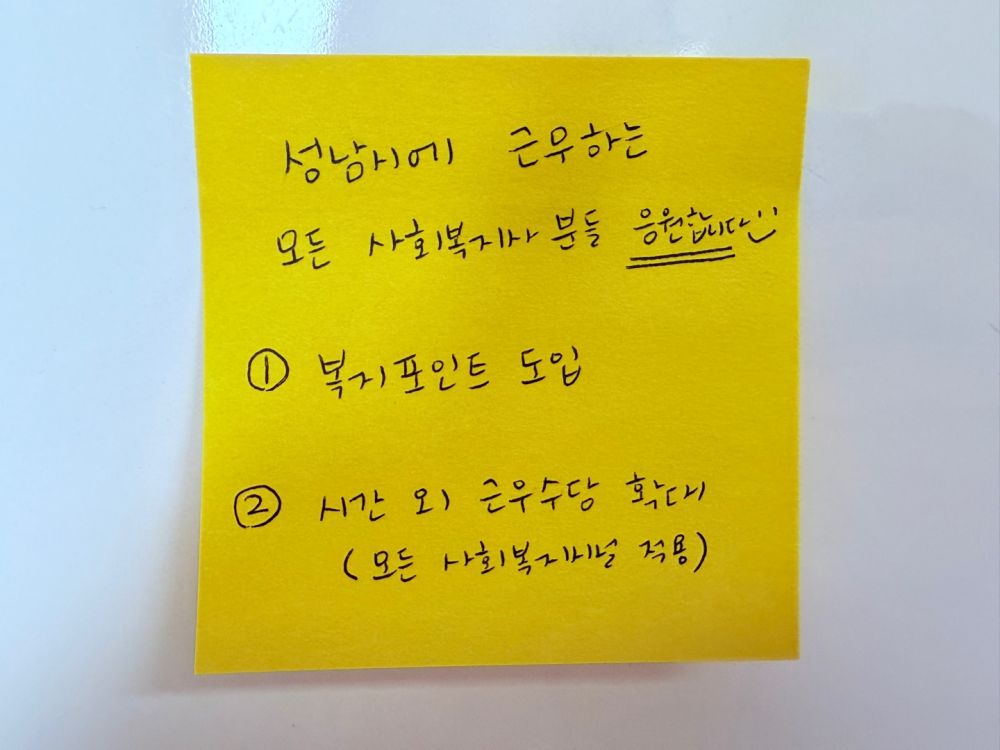 성남시에 근무하는
모든 사회복지사분들 응원합니다:)
① 복지포인트 도입
② 시간 외 근무수당 확대
(모든 사회복지시설 적용)